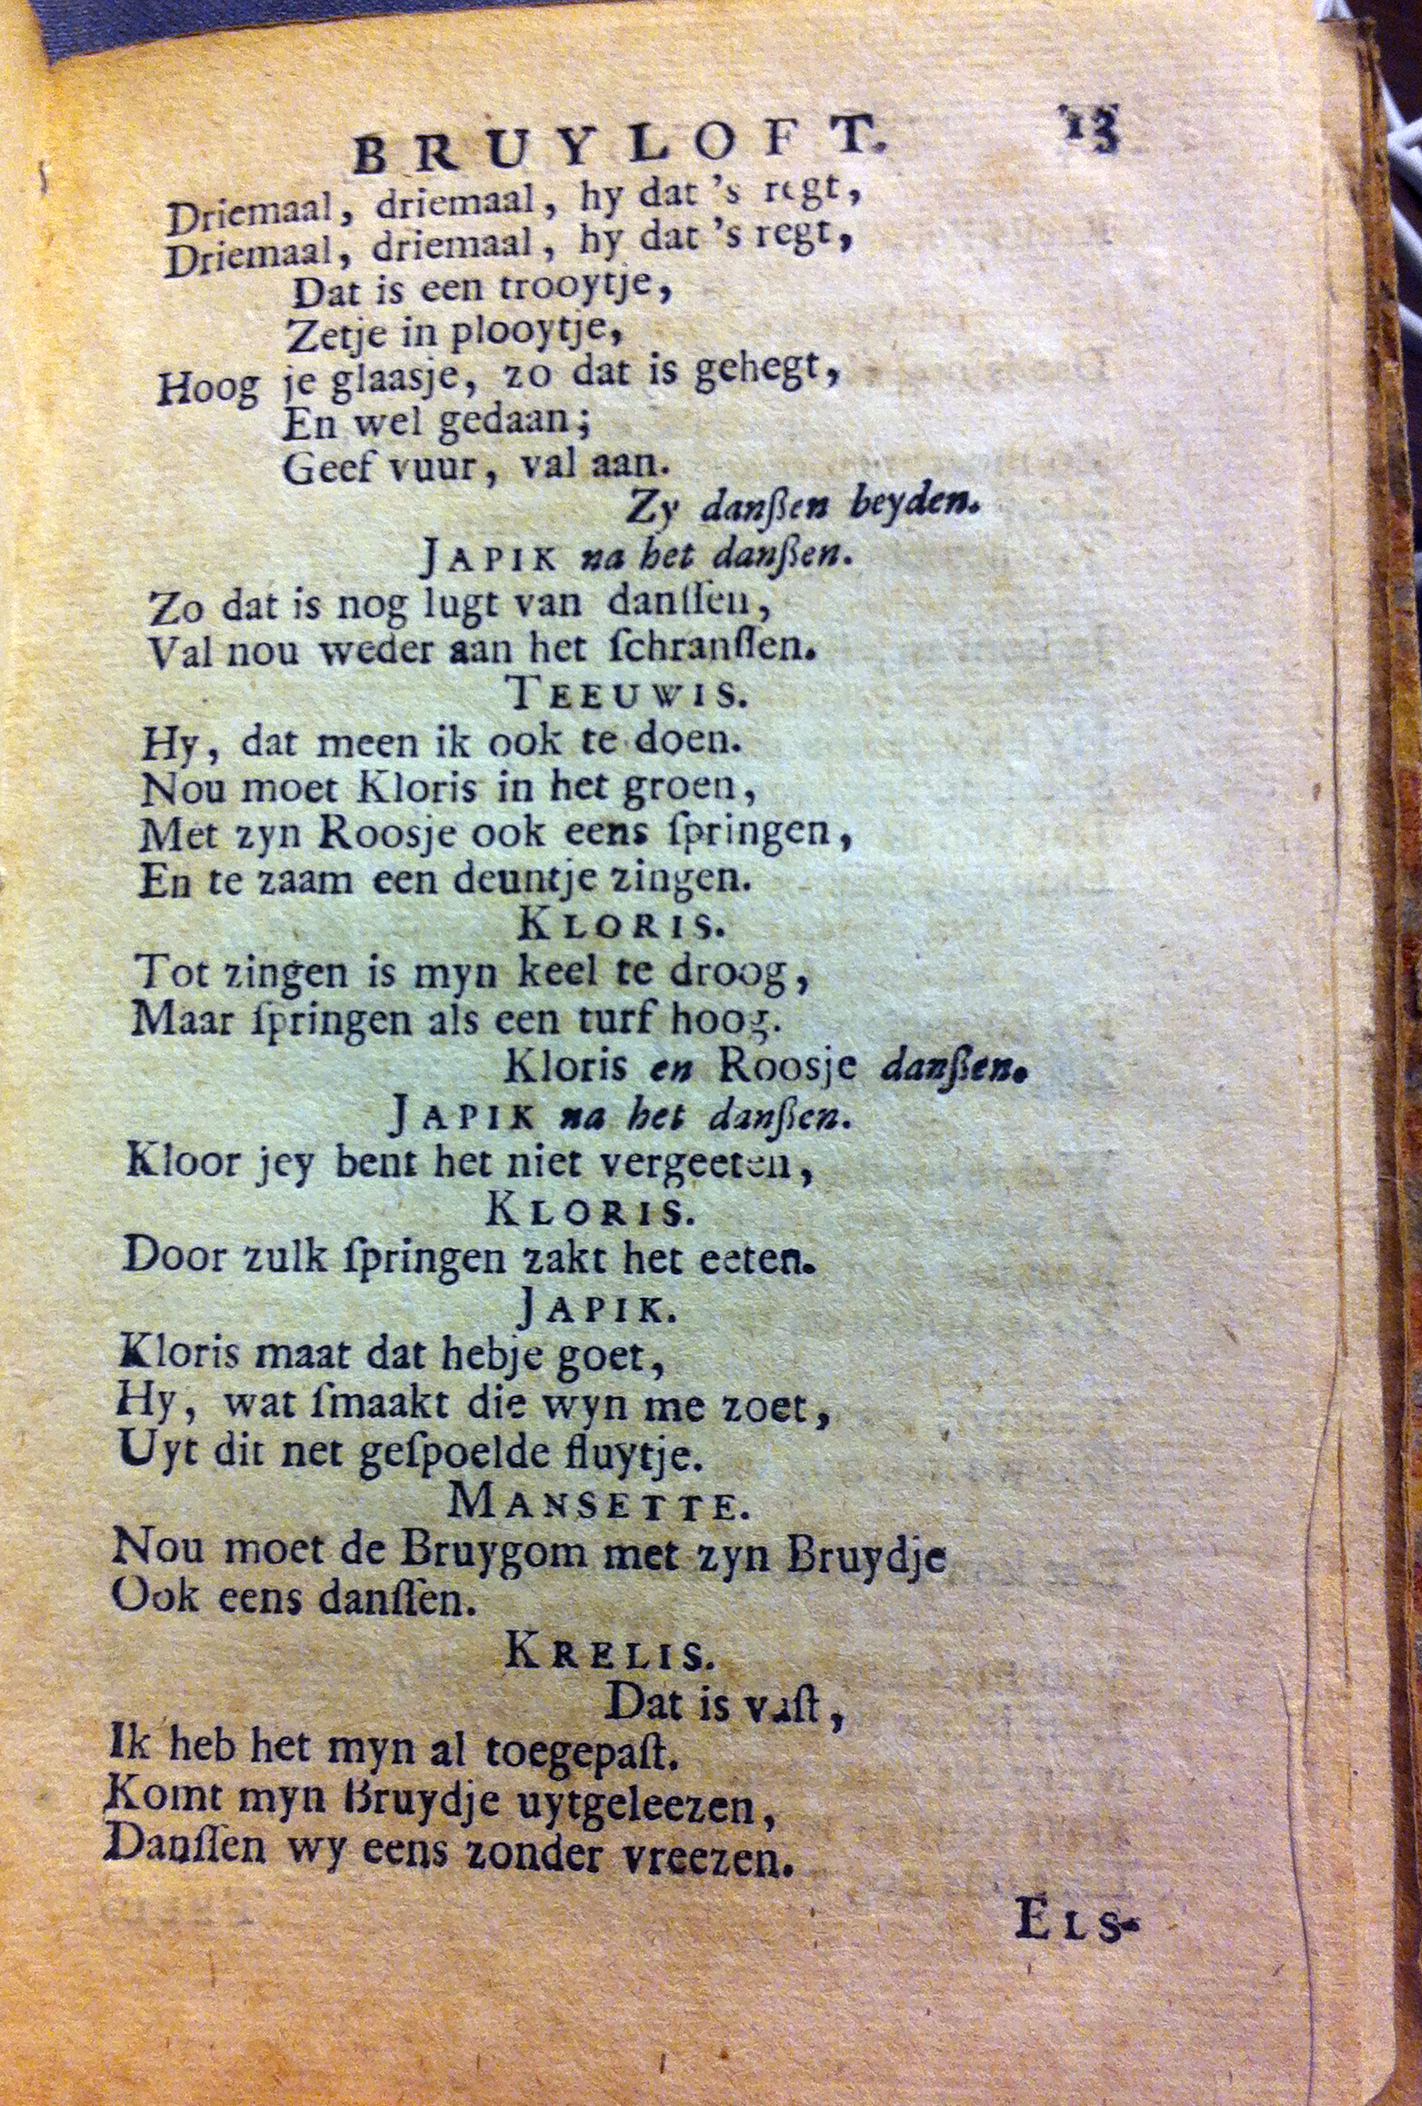 BRUYLOFT. 13
Driemaal, driemaal, hy dat 's regt,
Driemaal, driemaal, hy dat 's regt,
Dat is een trooytje,
Zetje in plooytje,
Hoog je glaasje, zo dat is gehegt,
En wel gedaan;
Geef vuur, val aan.
Zy danßen beyden.
JAPIK na het danßen.
Zo dat is nog lugt van danſſen,
Val nou weder aan het ſchranſſen.
TEEUWIS.
Hy, dat meen ik ook te doen.
Nou moet Kloris in het groen,
Met zyn Roosje ook eens ſpringen,
En te zaam een deuntje zingen.
KLORIS.
Tot zingen is myn keel te droog,
Maar ſpringen als een turf hoog.
Kloris en Roosje danßen.
JAPIK na het danßen.
Kloor jey bent het niet vergeeten,
KLORIS.
Door zulk ſpringen zakt het eeten.
JAPIK.
Kloris maat dat hebje goet,
Hy, wat ſmaakt die wyn me zoet,
Uyt dit net geſpoelde fluytje.
MANSETTE.
Nou moet de Bruygom met zyn Bruydje
Ook eens danſſen.
KRELIS.
Dat is vaſt,
Ik heb het myn al toegepaſt.
Komt myn Bruydje uytgeleezen,
Danſſen wy eens zonder vreezen.
ELS-